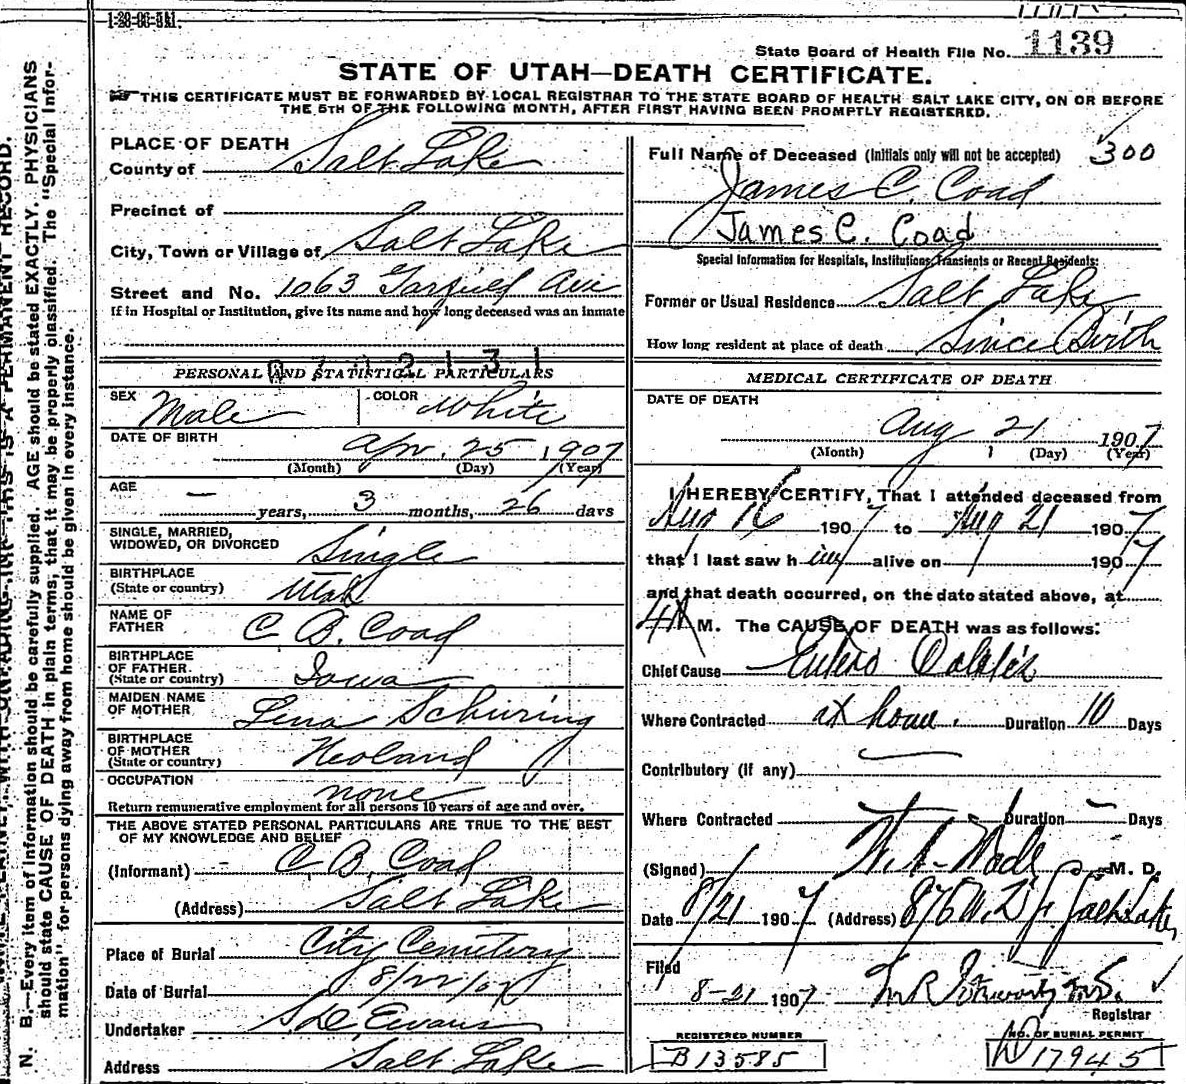 1-28-06-5M.
State Board of Health File No. 1139
STATE OF UTAH—DEATH CERTIFICATE.
THIS CERTIFICATE MUST BE FORWARDED BY LOCAL REGISTRAR TO THE STATE BOARD OF HEALTH SALT LAKE CITY, ON OR BEFORE
THE 5TH OF THE FOLLOWING MONTH, AFTER FIRST HAVING BEEN PROMPTLY REGISTERED.
PLACE OF DEATH
County of Salt Lake
Precinct of
City, Town or Village of Salt Lake
Street and No. 1063 Garfield Ave
If in Hospital or Institution, give its name and how long deceased was an inmate
PERSONAL AND STATISTICAL PARTICULARS
SEX Male COLOR White
DATE OF BIRTH Apr. 25, 1907
(Month) (Day) (Year)
AGE
— years, 3 months, 26 days
SINGLE, MARRIED,
WIDOWED, OR DIVORCED Single
BIRTHPLACE
(State or country) Utah
NAME OF
FATHER C. B. Coad
BIRTHPLACE
OF FATHER
(State or country) Iowa
MAIDEN NAME
OF MOTHER Lena Schuring
BIRTHPLACE
OF MOTHER
(State or country) Heoland
OCCUPATION none
Return remunerative employment for all persons 10 years of age and over.
THE ABOVE STATED PERSONAL PARTICULARS ARE TRUE TO THE BEST
OF MY KNOWLEDGE AND BELIEF
(Informant) C. B. Coad
(Address) Salt Lake
Place of Burial City Cemetery
Date of Burial 8/22/07
Undertaker Evans
Address Salt Lake
Full Name of Deceased (Initials only will not be accepted) 300
James C. Coad
James C. Coad
Special Information for Hospitals, Institutions, Transients or Recent Residents:
Former or Usual Residence Salt Lake
How long resident at place of death Since Birth
MEDICAL CERTIFICATE OF DEATH
DATE OF DEATH
Aug 21 1907
(Month) (Day) (Year)
I HEREBY CERTIFY, That I attended deceased from
Aug 16 1907 to Aug 21 1907
that I last saw him alive on 1907
and that death occurred, on the date stated above, at
M. The CAUSE OF DEATH was as follows:
Chief Cause Entero Colitis
Where Contracted at home. Duration 10 Days
Contributory (if any)
Where Contracted Duration — Days
(Signed) M. D.
Date 8/21 1907 (Address) Salt Lake
Filed
8-21 1907
Registrar
REGISTERED NUMBER
B13585
NO. OF BURIAL PERMIT
17945
N. B.—Every item of information should be carefully supplied. AGE should be stated EXACTLY. PHYSICIANS
should state CAUSE OF DEATH in plain terms, that it may be properly classified. The "Special Infor-
mation" for persons dying away from home should be given in every instance.